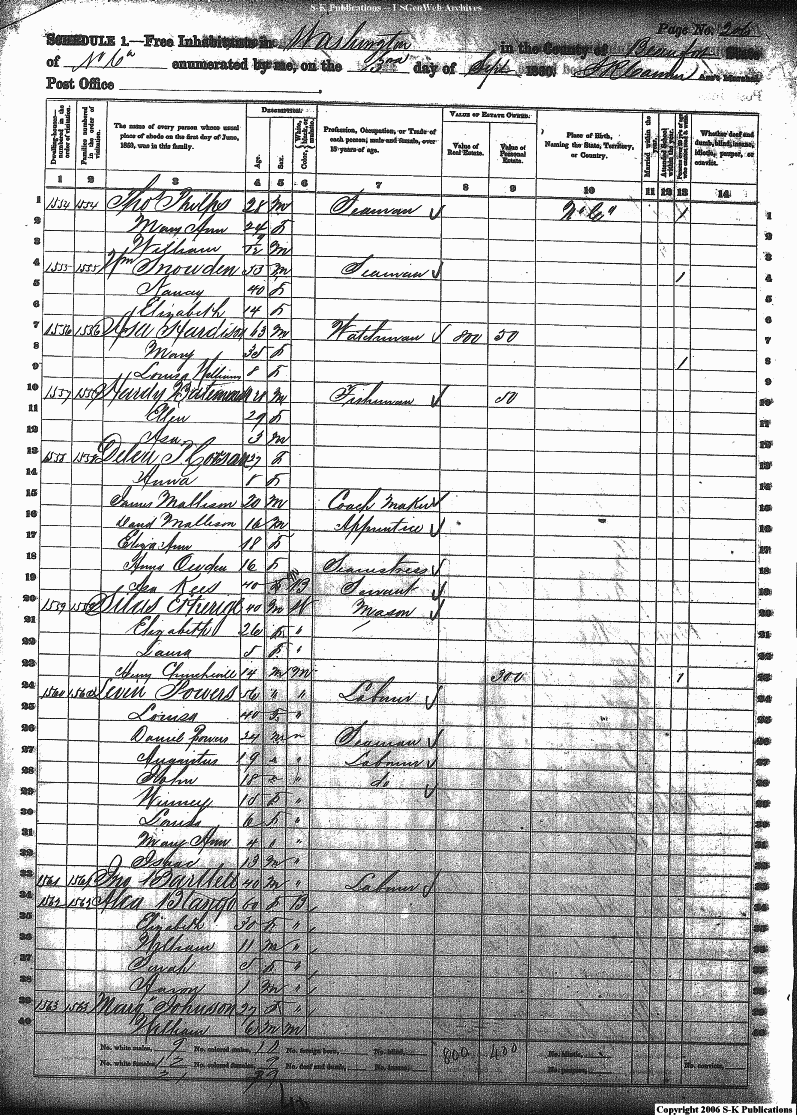 S-K Publications -- USGenWeb Archives
Page No. 206
SCHEDULE 1.—Free Inhabitants in Washington in the County of Beaufort State
of No Ca enumerated by me, on the 3rd day of Sept 1860.
Post Office
DESCRIPTION. VALUE OF ESTATE OWNED.
Dwelling-houses numbered in the order of visitation. Families numbered in the order of visitation. The name of every person whose usual place of abode on the first day of June, 1860, was in this family. Age. Sex. Color, White, black, or mulatto. Profession, Occupation, or Trade of each person, male and female, over 15 years of age. Value of Real Estate. Value of Personal Estate. Place of Birth, Naming the State, Territory, or Country. Married within the year. Attended School within the year. Whether deaf and dumb, blind, insane, idiotic, pauper, or convict.
1 2 3 4 5 6 7 8 9 10 11 12 13 14
1 1554 1554 Thos Phelps 28 M Seaman No Ca 1 1
2 Mary Ann 24 F 2
3 William 9/12 M 3
4 1555 1555 Wm Snowden 53 M Seaman 1 4
5 Nancy 40 F 5
6 Elizabeth 14 F 6
7 1556 1556 Asa Hardison 63 M Watchman 800 50 7
8 Mary 35 F 1 8
9 Louisa Williams 8 F 9
10 1557 1557 Hardy Bateman 28 M Fisherman 50 10
11 Ellen 29 F 11
12 Asa 3 M 12
13 1558 1558 37 F 13
14 Anna 1 F 14
15 James Mallison 20 M Coach Maker 15
16 David Mallison 16 M Apprentice 16
17 Eliza Ann 18 F 17
18 Anna Owden 16 F Seamstress 18
19 Asa Rees 40 F B Servant 19
20 1559 1559 Silas Etherige 40 M W Mason 20
21 Elizabeth 26 F " 21
22 Laura 5 F " 22
23 Henry Churchwell 14 M M 300 1 23
24 1560 1560 Levin Powers 56 " " Labourer 24
25 Louisa 40 F " 25
26 Daniel Powers 24 M " Seaman 26
27 Augustus 19 " " Labourer 27
28 John 18 " " do 28
29 Winney 15 F " 29
30 Louisa 6 F " 30
31 Mary Ann 4 " " 31
32 Isaac 13 M " 32
33 1561 1561 Jno Bartlett 40 M " Labourer 33
34 1562 1562 Blango 60 F B 34
35 Elizabeth 30 F " 35
36 William 11 M " 36
37 Sarah 5 F " 37
38 Aaron 1 M " 38
39 1563 1563 Mary Johnson 27 F " 39
40 William 6 M M 40
No. white males, 9 No. colored males, 10 No. foreign born, No. blind, 800 400 No. idiotic,
No. white females, 12 No. colored females, 9 No. deaf and dumb, No. insane, No. paupers, No. convicts,
21
Copyright 2006 S-K Publications